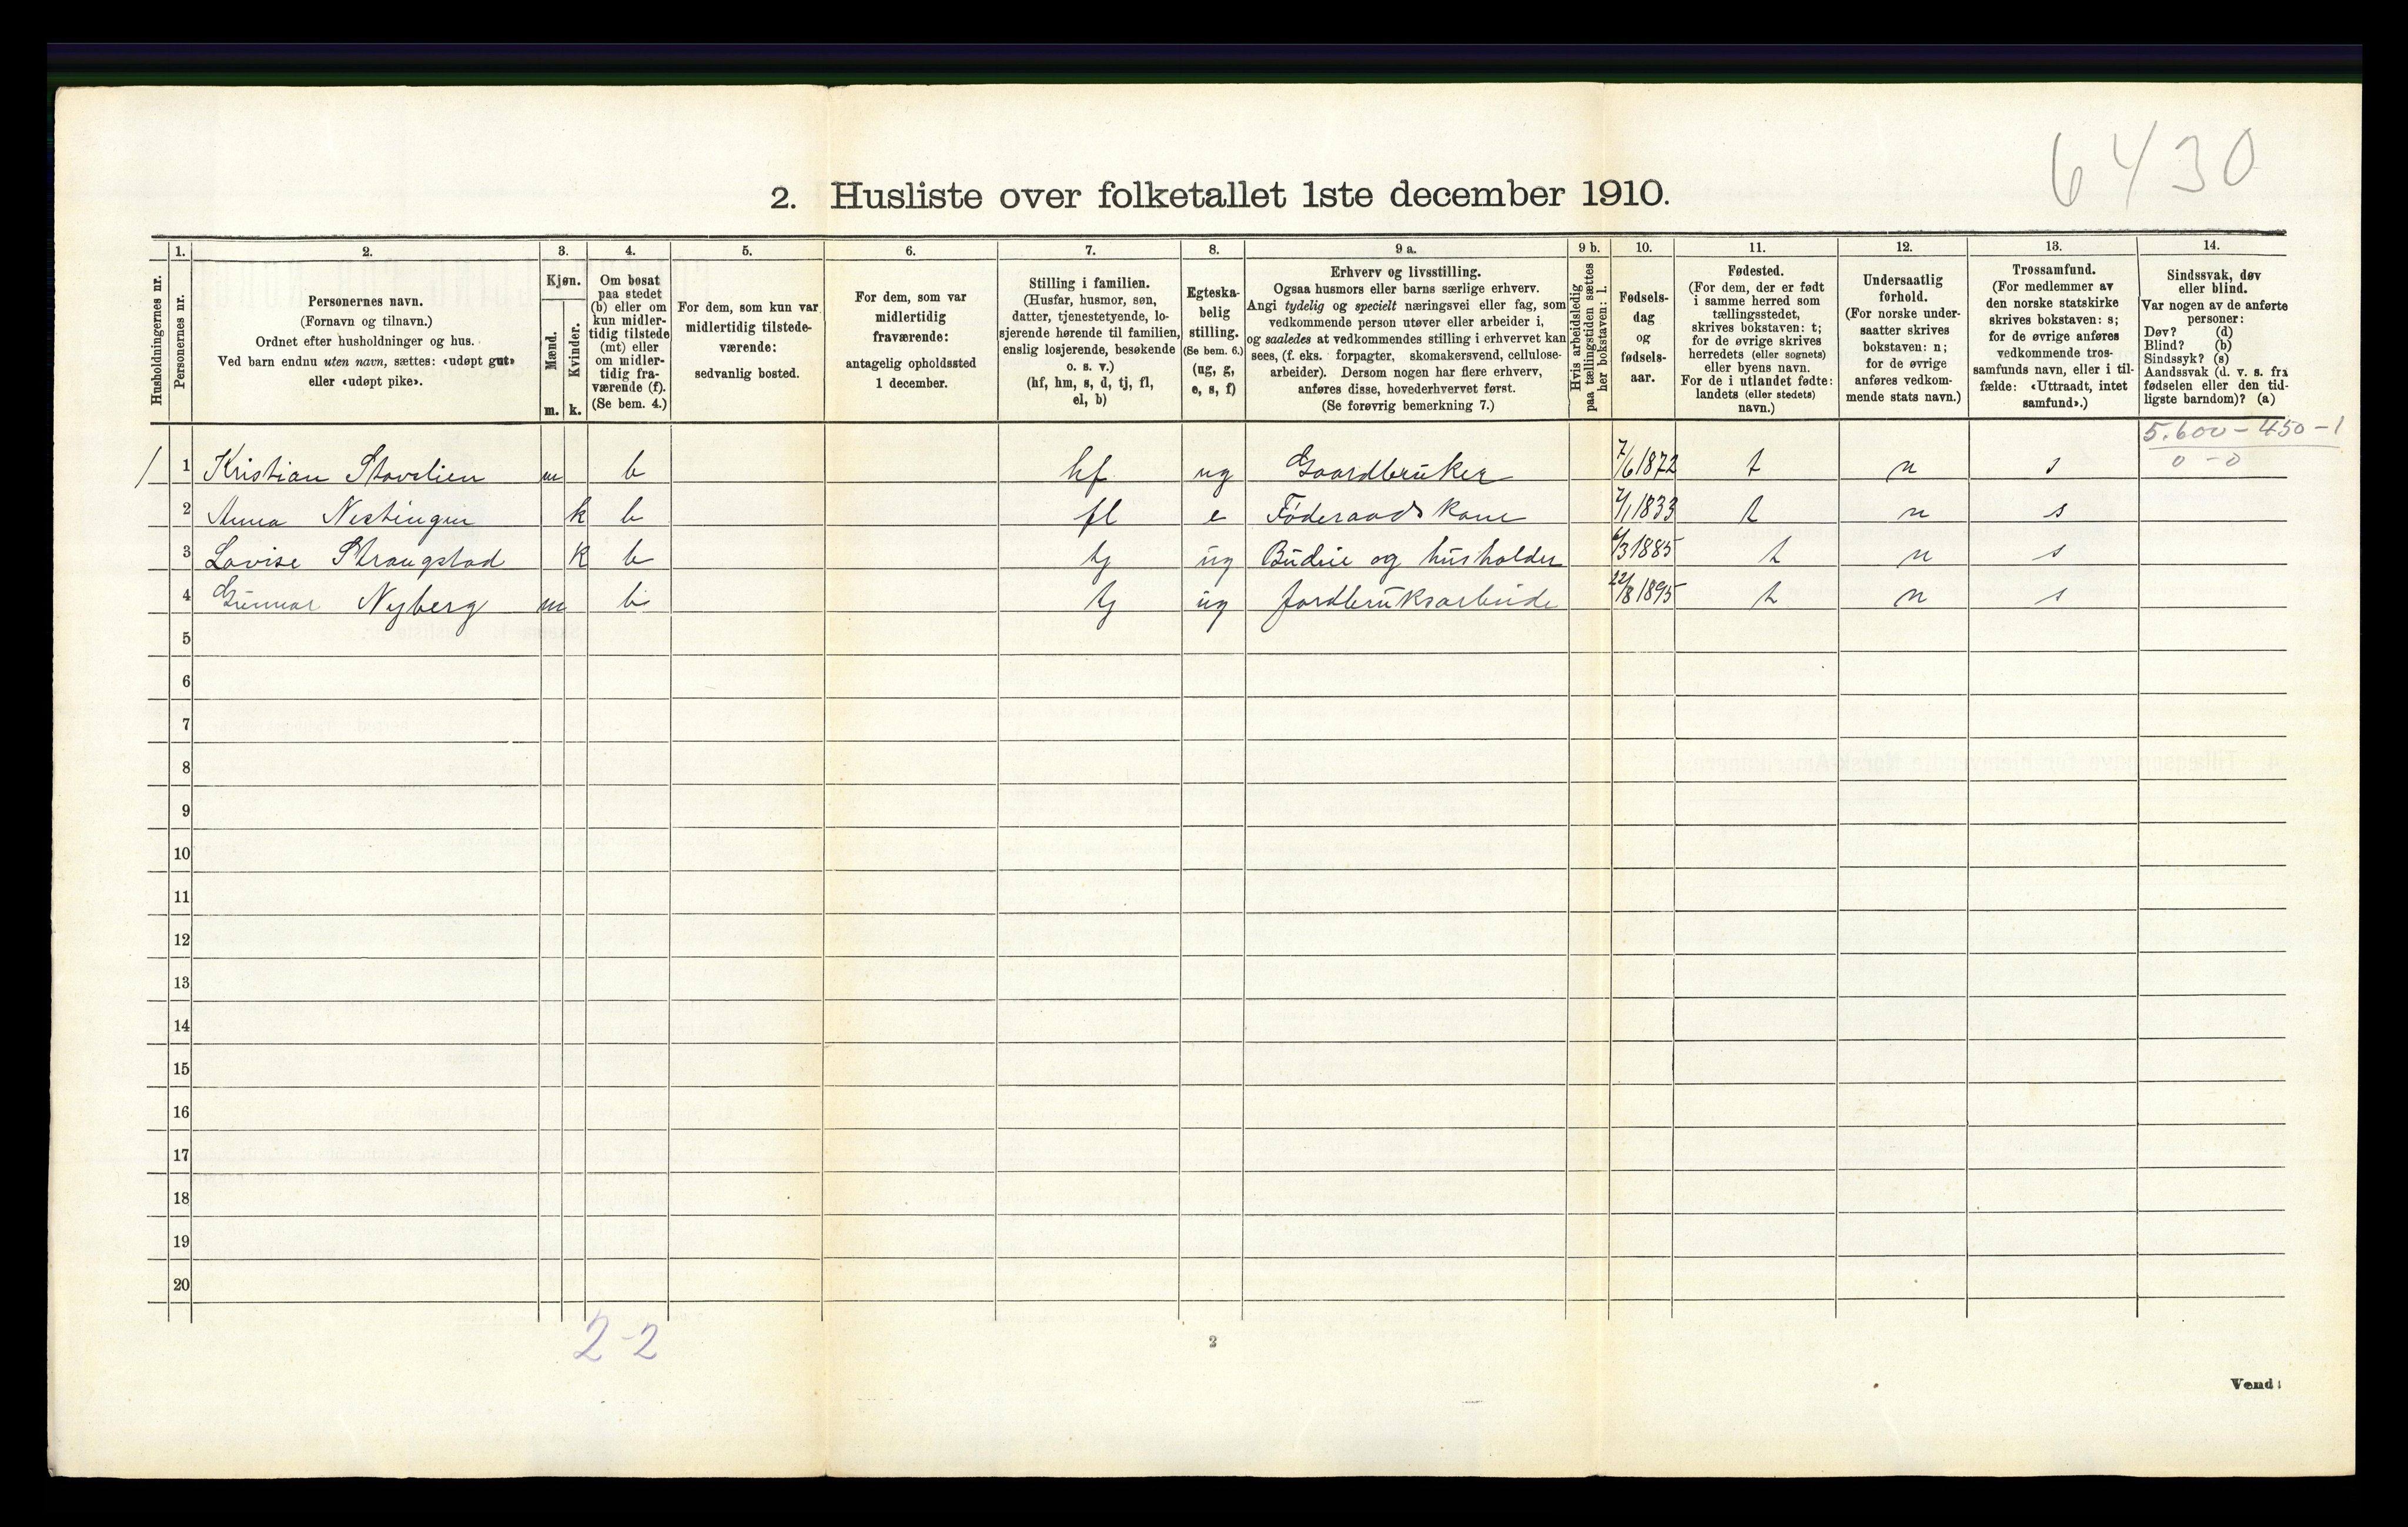 6430
2. Husliste over folketallet 1ste december 1910.
Husholdningernes nr.
1.
Personernes nr.
2.
Personernes navn.
(Fornavn og tilnavn.)
Ordnet efter husholdninger og hus.
Ved barn endnu uten navn, sættes: «udøpt gut»
eller «udøpt pike».
3.
Kjøn.
Mænd.
m.
Kvinder.
k.
4.
Om bosat
paa stedet
(b) eller om
kun midler-
tidig tilstede
(mt) eller
om midler-
tidig fra-
værende (f).
(Se bem. 4.)
5.
For dem, som kun var
midlertidig tilstede-
værende:
sedvanlig bosted.
6.
For dem, som var
midlertidig
fraværende:
antagelig opholdssted
1 december.
7.
Stilling i familien.
(Husfar, husmor, søn,
datter, tjenestetyende, lo-
sjerende hørende til familien,
enslig losjerende, besøkende
o. s. v.)
(hf, hm, s, d, tj, fl,
el, b)
8.
Egteska-
belig
stilling.
(Se bem. 6.)
(ug, g,
e, s, f)
9 a.
Erhverv og livsstilling.
Ogsaa husmors eller barns særlige erhverv.
Angi tydelig og specielt næringsvei eller fag, som
vedkommende person utøver eller arbeider i,
og saaledes at vedkommendes stilling i erhvervet kan
sees, (f. eks. forpagter, skomakersvend, cellulose-
arbeider). Dersom nogen har flere erhverv,
anføres disse, hovederhvervet først.
(Se forøvrig bemerkning 7.)
9 b.
Hvis arbeidsledig
paa tællingstiden sættes
her bokstaven: l.
10.
Fødsels-
dag
og
fødsels-
aar.
11.
Fødested.
(For dem, der er født
i samme herred som
tællingsstedet,
skrives bokstaven: t;
for de øvrige skrives
herredets (eller sognets)
eller byens navn.
For de i utlandet fødte:
landets (eller stedets)
navn.)
12.
Undersaatlig
forhold.
(For norske under-
saatter skrives
bokstaven: n;
for de øvrige
anføres vedkom-
mende stats navn.)
13.
Trossamfund.
(For medlemmer av
den norske statskirke
skrives bokstaven: s;
for de øvrige anføres
vedkommende tros-
samfunds navn, eller i til-
fælde: «Uttraadt, intet
samfund».)
14.
Sindssvak, døv
eller blind.
Var nogen av de anførte
personer:
Døv? (d)
Blind? (b)
Sindssyk? (s)
Aandssvak (d. v. s. fra
fødselen eller den tid-
ligste barndom)? (a)
5.600 - 450 - 1
0 - 0
1 1 Kristian Stovelien m b hf ug Gaardbruker 7/6 1872 t n s
2 Anna Nestingen k b fl e Føderaadskone 7/1 1833 t n s
3 Lovise Strangstad k b tj ug Budeie og husholder 6/3 1885 t n s
4 Gunnar Nyberg m b tj ug Jordbruksarbeide 22/8 1895 t n s
5
6
7
8
9
10
11
12
13
14
15
16
17
18
19
20
2-2
2
Vend!